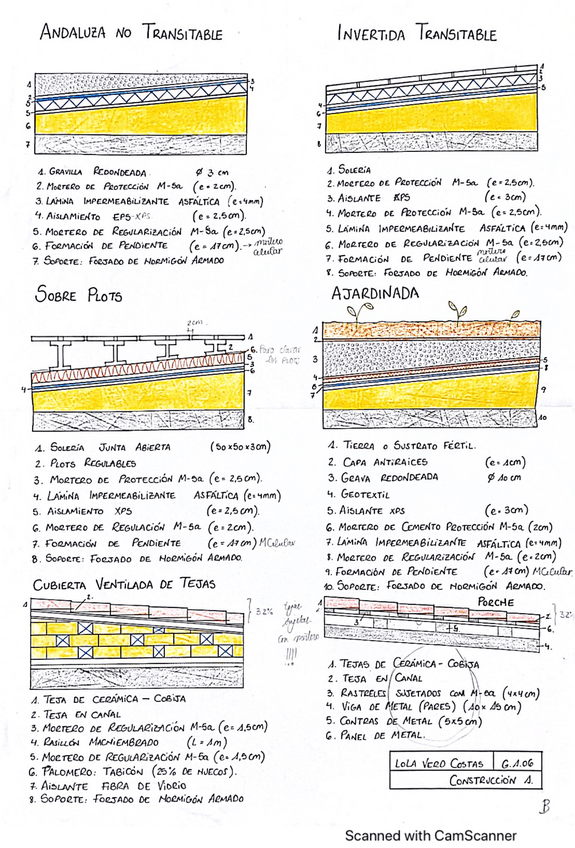 ANDALUZA NO TRANSITABLE
1. GRAVILLA REDONDEADA Ø 3 cm
2. MORTERO DE PROTECCIÓN M-5a (e = 2cm).
3. LÁMINA IMPERMEABILIZANTE ASFÁLTICA (e=4mm)
4. AISLAMIENTO EPS-XPS (e = 2,5cm).
5. MORTERO DE REGULARIZACIÓN M-5a (e=2,5cm)
6. FORMACIÓN DE PENDIENTE (e = 17cm). → mortero celular
7. SOPORTE: FORJADO DE HORMIGÓN ARMADO.
INVERTIDA TRANSITABLE
1. SOLERÍA
2. MORTERO DE PROTECCIÓN M-5a (e = 2,5cm).
3. AISLANTE XPS (e = 3cm)
4. MORTERO DE PROTECCIÓN M-5a (e = 2,5cm).
5. LÁMINA IMPERMEABILIZANTE ASFÁLTICA (e=4mm)
6. MORTERO DE REGULARIZACIÓN M-5a (e=2,5cm)
7. FORMACIÓN DE PENDIENTE mortero celular (e = 17cm)
8. SOPORTE: FORJADO DE HORMIGÓN ARMADO.
SOBRE PLOTS
2cm
1. SOLERÍA JUNTA ABIERTA (50x50x3cm)
2. PLOTS REGULABLES
3. MORTERO DE PROTECCIÓN M-5a (e = 2,5cm).
4. LÁMINA IMPERMEABILIZANTE ASFÁLTICA (e=4mm)
5. AISLAMIENTO XPS (e = 2,5cm).
6. MORTERO DE REGULACIÓN M-5a (e = 2cm).
7. FORMACIÓN DE PENDIENTE (e = 17cm) MCelular
8. SOPORTE: FORJADO DE HORMIGÓN ARMADO.
AJARDINADA
1. TIERRA O SUSTRATO FÉRTIL.
2. CAPA ANTIRAICES (e = 1cm)
3. GRAVA REDONDEADA Ø 10 cm
4. GEOTEXTIL
5. AISLANTE XPS (e = 3cm)
6. MORTERO DE CEMENTO PROTECCIÓN M-5a (2cm)
7. LÁMINA IMPERMEABILIZANTE ASFÁLTICA (e=4mm)
8. MORTERO DE REGULARIZACIÓN M-5a (e=2cm)
9. FORMACIÓN DE PENDIENTE (e = 17cm) MCelular
10. SOPORTE: FORJADO DE HORMIGÓN ARMADO.
CUBIERTA VENTILADA DE TEJAS
32%
1. TEJA DE CERÁMICA - COBIJA
2. TEJA EN CANAL
3. MORTERO DE REGULARIZACIÓN M-5a (e = 1,5cm)
4. RASILLÓN MACHIEMBRADO (L = 1m)
5. MORTERO DE REGULARIZACIÓN M-5a (e = 1,5cm)
6. PALOMERO: TABICÓN (25% DE HUECOS).
7. AISLANTE FIBRA DE VIDRIO
8. SOPORTE: FORJADO DE HORMIGÓN ARMADO
PORCHE
32%
1. TEJAS DE CERÁMICA - COBIJA
2. TEJA EN CANAL
3. RASTRELES SUJETADOS CON M-5a (4x4cm)
4. VIGA DE METAL (PARES) (10x15cm)
5. CONTRAS DE METAL (5x5cm)
6. PANEL DE METAL.
LOLA VERO COSTAS G.1.06
CONSTRUCCIÓN 1.
B
Scanned with CamScanner